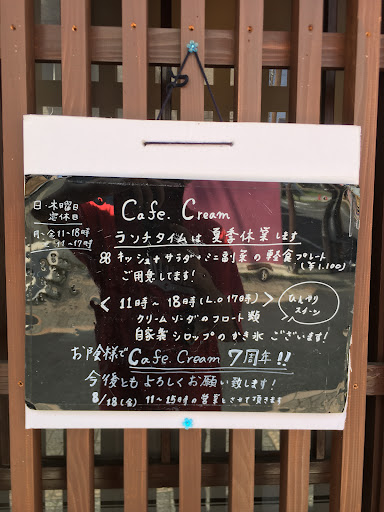 日・木曜日
定休日
月〜金11〜18時
11〜17時
Cafe. Cream
ランチタイムは夏季休業します
キッシュ+サラダ+ミニ副菜の軽食プレート
(¥1.100)
ご用意してます!
〈11時〜18時(L.O 17時)〉
ひんやり
スイーツ
クリームソーダのフロート類
自家製シロップのかき氷 ございます!
お陰様でCafe. Cream 7周年!!
今後ともよろしくお願い致します!
8/18(金) 11〜15時の営業とさせて頂きます